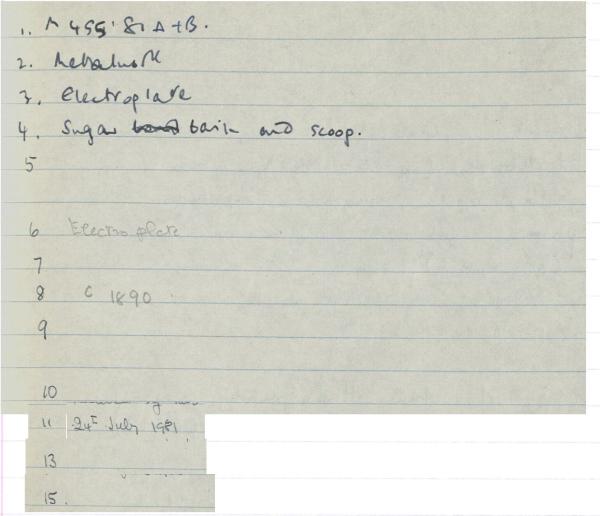 1. M 455'81 A+B.
2. Metalwork
3. Electroplate
4. Sugar basin and scoop.
5
6 Electroplate
7
8 C 1890
9
10
11 24th July 1981
13
15.